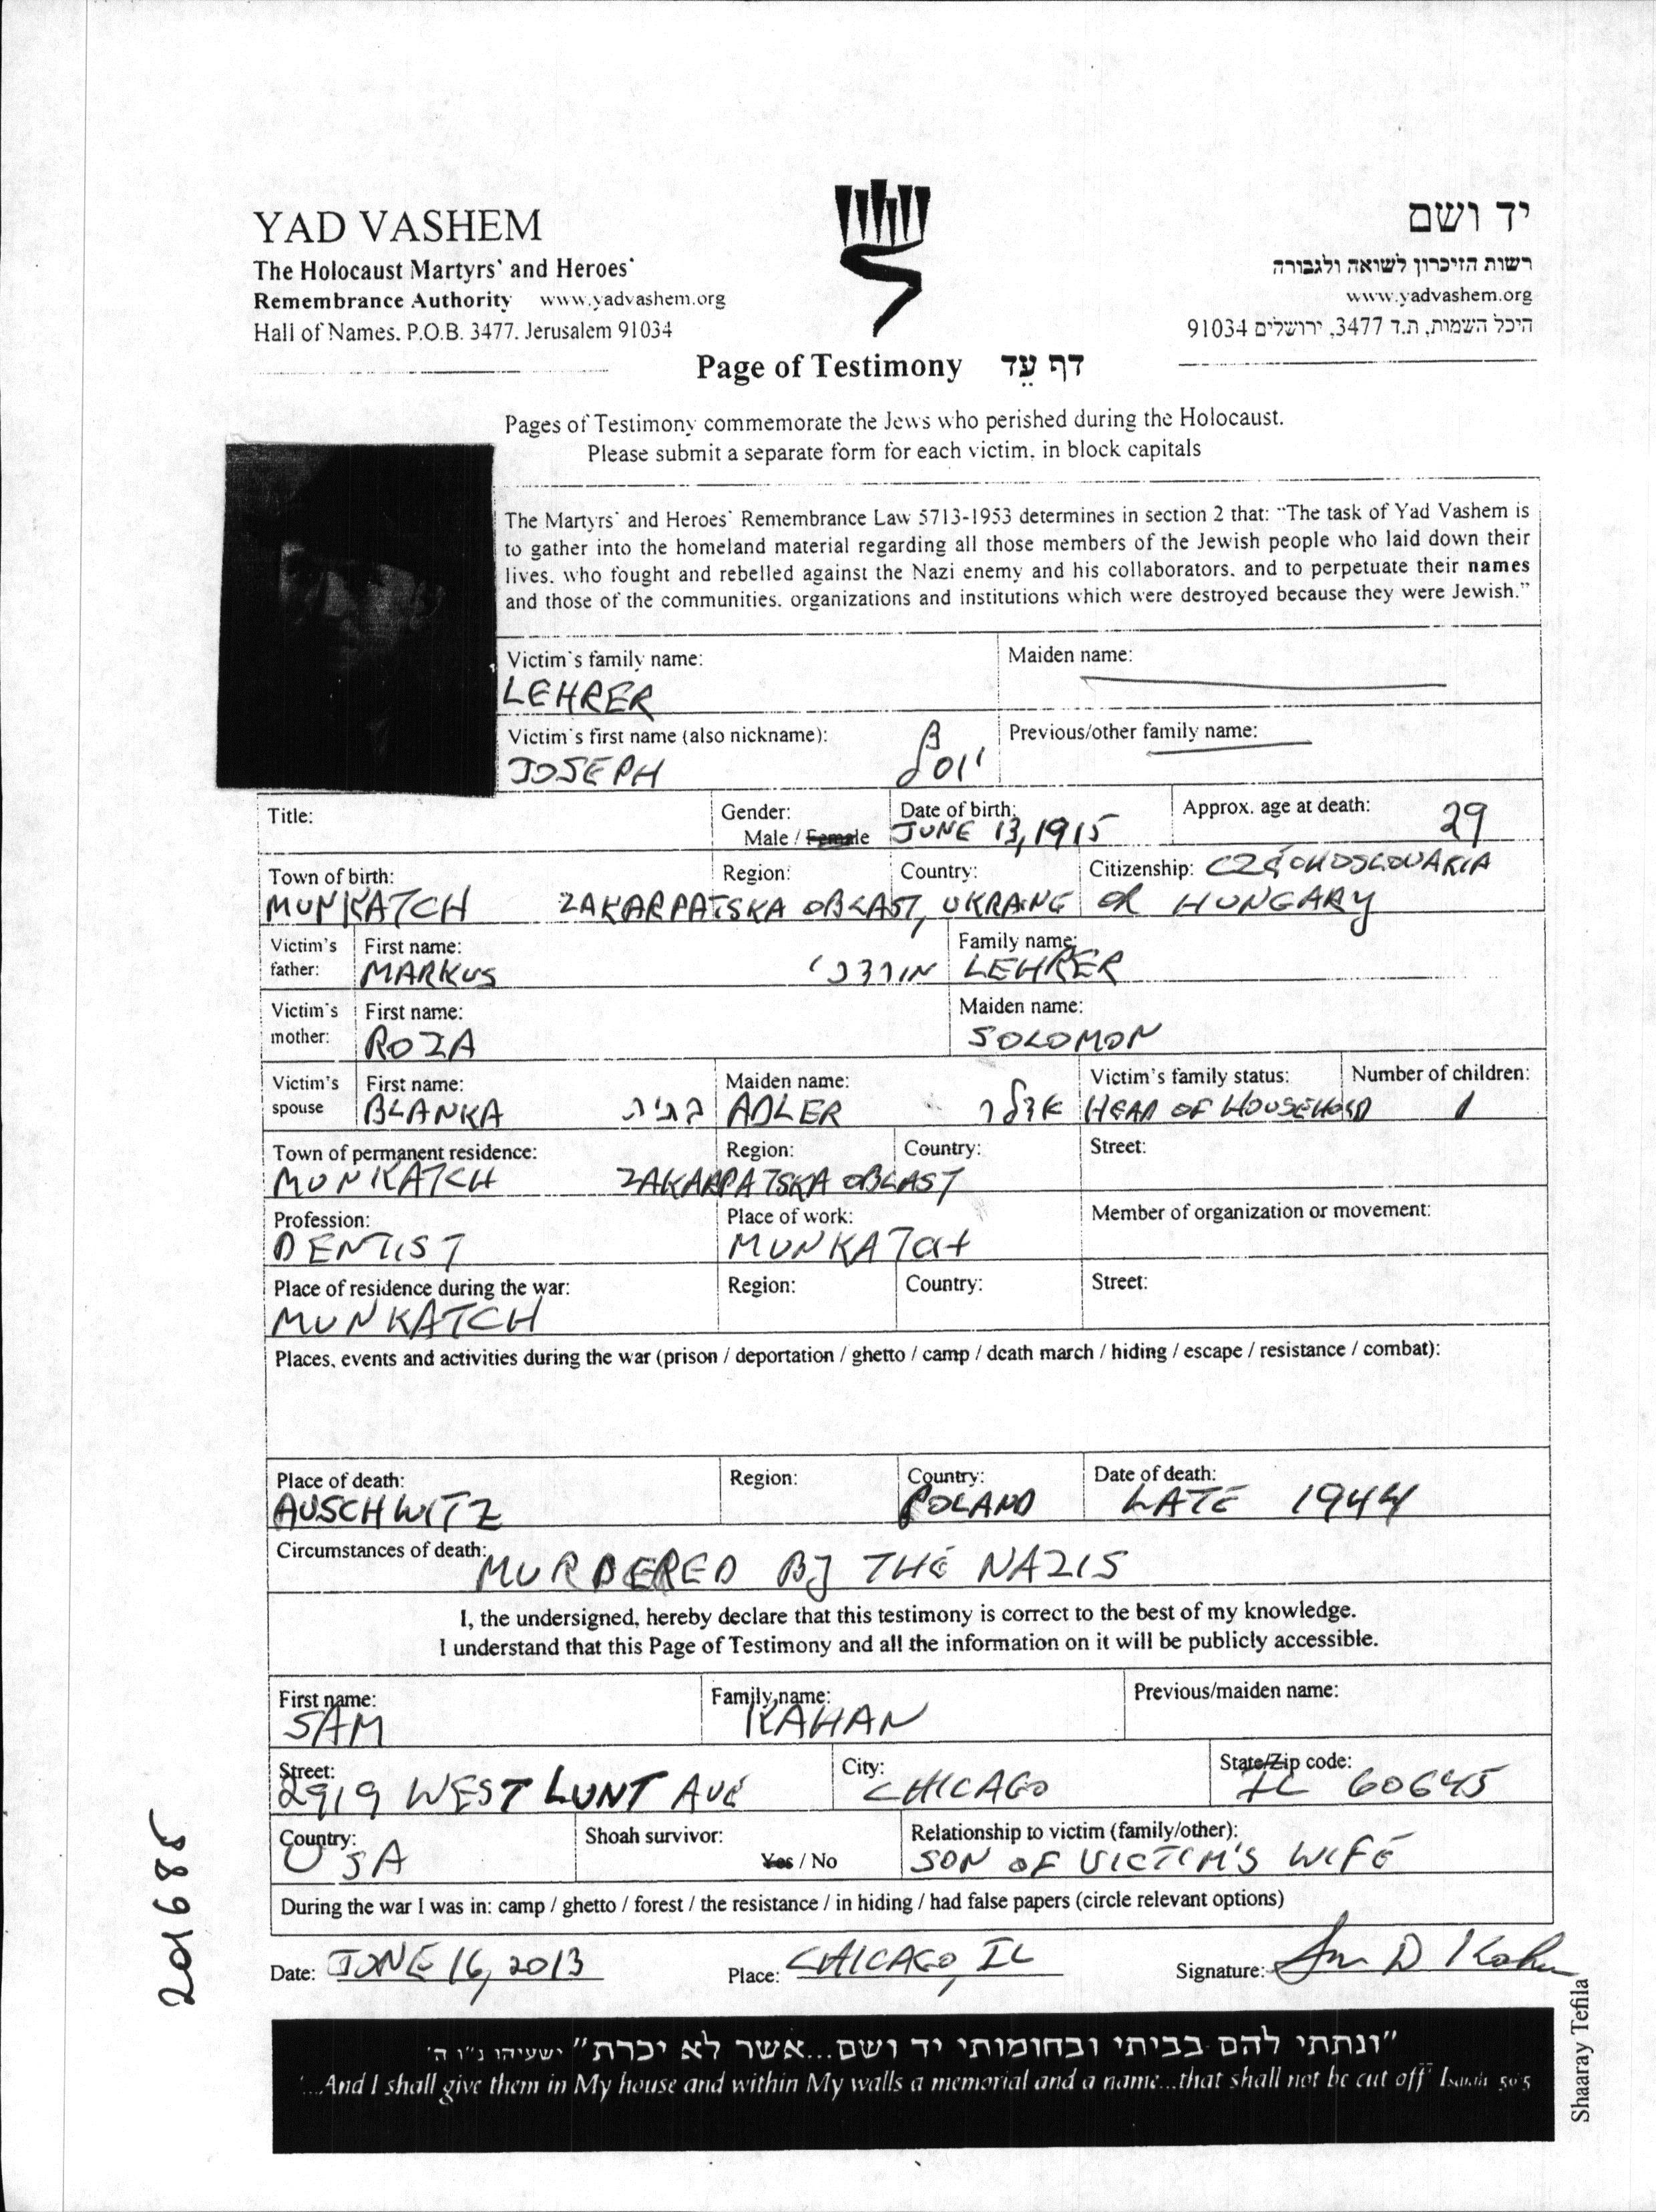 YAD VASHEM
The Holocaust Martyrs' and Heroes'
Remembrance Authority www.yadvashem.org
Hall of Names, P.O.B. 3477, Jerusalem 91034
יד ושם
רשות הזיכרון לשואה ולגבורה
www.yadvashem.org
היכל השמות, ת.ד 3477, ירושלים 91034
Page of Testimony דף עֵד
Pages of Testimony commemorate the Jews who perished during the Holocaust.
Please submit a separate form for each victim, in block capitals
The Martyrs' and Heroes' Remembrance Law 5713-1953 determines in section 2 that: "The task of Yad Vashem is
to gather into the homeland material regarding all those members of the Jewish people who laid down their
lives, who fought and rebelled against the Nazi enemy and his collaborators, and to perpetuate their names
and those of the communities, organizations and institutions which were destroyed because they were Jewish."
Victim's family name: Maiden name:
LEHRER
Victim's first name (also nickname): Previous/other family name:
JOSEPH יוסף
Title: Gender: Date of birth: Approx. age at death: 29
Male / Female JUNE 13, 1915
Town of birth: Region: Country: Citizenship: CZECHOSLOVAKIA
MUNKATCH ZAKARPATSKA OBLAST, UKRAINE OR HUNGARY
Victim's father: First name: Family name:
MARKUS מורדכי LEHRER
Victim's mother: First name: Maiden name:
ROZA SOLOMON
Victim's spouse First name: Maiden name: Victim's family status: Number of children:
BLANKA ADLER אדלר HEAD OF HOUSEHOLD 1
Town of permanent residence: Region: Country: Street:
MUNKATCH ZAKARPATSKA OBLAST
Profession: Place of work: Member of organization or movement:
DENTIST MUNKATCH
Place of residence during the war: Region: Country: Street:
MUNKATCH
Places, events and activities during the war (prison / deportation / ghetto / camp / death march / hiding / escape / resistance / combat):
Place of death: Region: Country: Date of death:
AUSCHWITZ POLAND LATE 1944
Circumstances of death: MURDERED BY THE NAZIS
I, the undersigned, hereby declare that this testimony is correct to the best of my knowledge.
I understand that this Page of Testimony and all the information on it will be publicly accessible.
First name: Family name: Previous/maiden name:
SAM KAHAN
Street: City: State/Zip code:
2919 WEST LUNT AVE CHICAGO IL 60645
Country: Shoah survivor: Relationship to victim (family/other):
USA Yes / No SON OF VICTIM'S WIFE
During the war I was in: camp / ghetto / forest / the resistance / in hiding / had false papers (circle relevant options)
Date: JUNE 16, 2013 Place: CHICAGO, IL Signature: Sam D Kahan
"ונתתי להם בביתי ובחומותי יד ושם...אשר לא יכרת" ישעיהו נ"ו ה'
"...And I shall give them in My house and within My walls a memorial and a name...that shall not be cut off" Isaiah 56:5
Shaaray Tefila